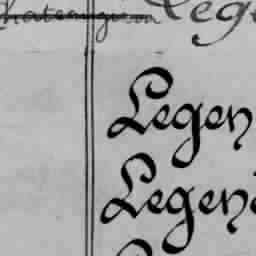 Lege
Legen
Legen